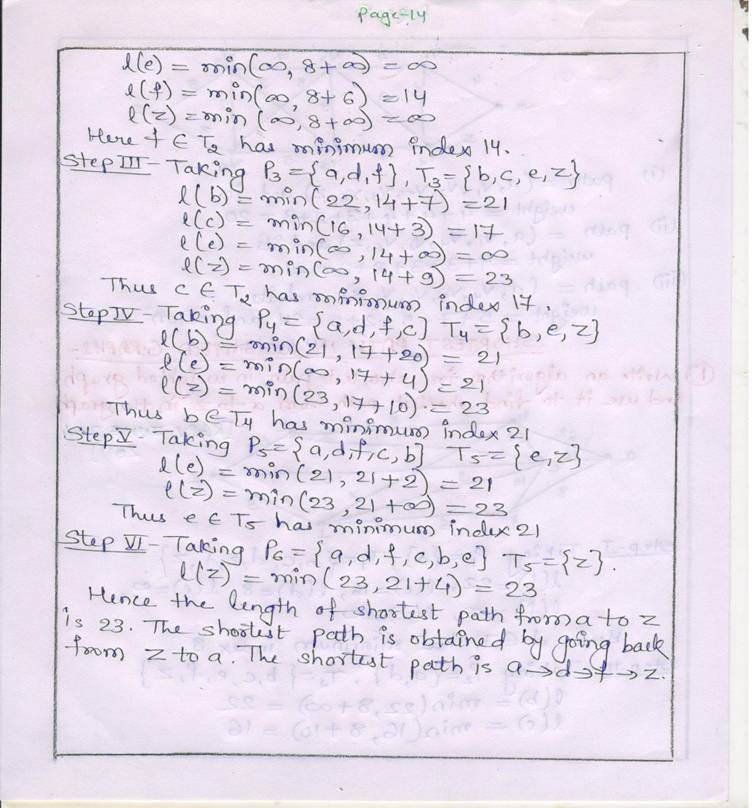 Page-14
l(e) = min(∞, 8+∞) = ∞
l(f) = min(∞, 8+6} = 14
l(z) = min (∞, 8+∞) = ∞
Here f ∈ T₂ has minimum index 14.
Step III - Taking P₃ = {a,d,f}, T₃ = {b,c,e,z}
l(b) = min(22, 14+7) = 21
l(c) = min(16, 14+3) = 17
l(e) = min(∞, 14+∞) = ∞
l(z) = min(∞, 14+9) = 23
Thus c ∈ T₂ has minimum index 17.
Step IV - Taking P₄ = {a,d,f,c} T₄ = {b,e,z}
l(b) = min(21, 17+20) = 21
l(e) = min(∞, 17+4) = 21
l(z) = min(23, 17+10) = 23
Thus b ∈ T₄ has minimum index 21
Step V - Taking P₅ = {a,d,f,c,b} T₅ = {e,z}
l(e) = min(21, 21+2) = 21
l(z) = min(23, 21+∞) = 23
Thus e ∈ T₅ has minimum index 21
Step VI - Taking P₆ = {a,d,f,c,b,e} T₅ = {z}.
l(z) = min(23, 21+4) = 23
Hence the length of shortest path from a to z
is 23. The shortest path is obtained by going back
from z to a. The shortest path is a→d→f→z.